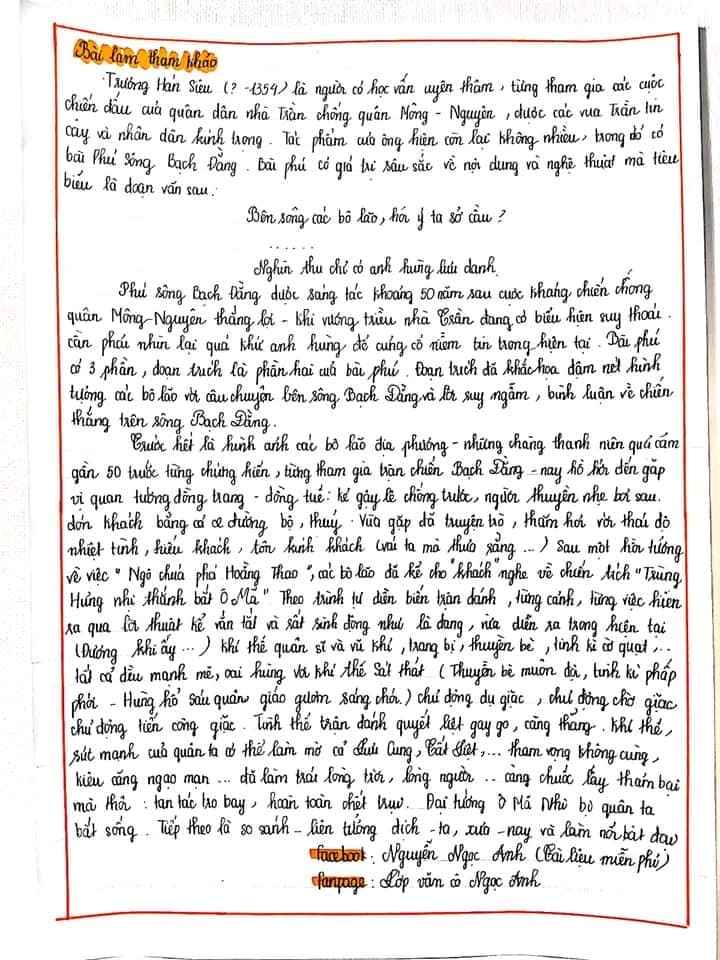 Bài làm tham khảo
Trương Hán Siêu (? -1354) là người có học vấn uyên thâm, từng tham gia các cuộc
chiến đấu của quân dân nhà Trần chống quân Mông - Nguyên, được các vua Trần tin
cậy và nhân dân kính trọng. Tác phẩm của ông hiện còn lại không nhiều, trong đó có
bài Phú Sông Bạch Đằng. Bài phú có giá trị sâu sắc về nội dung và nghệ thuật mà tiêu
biểu là đoạn văn sau:
Bên sông các bô lão, hỏi ý ta sở cầu?
......
Nghìn thu chỉ có anh hùng lưu danh.
Phú sông Bạch Đằng được sáng tác khoảng 50 năm sau cuộc kháng chiến chống
quân Mông-Nguyên thắng lợi - khi vương triều nhà Trần đang có biểu hiện suy thoái.
cần phải nhìn lại quá khứ anh hùng để củng cố niềm tin trong hiện tại. Bài phú
có 3 phần, đoạn trích là phần hai của bài phú. Đoạn trích đã khắc họa đậm nét hình
tượng các bô lão với câu chuyện bên sông Bạch Đằng và lời suy ngẫm, bình luận về chiến
thắng trên sông Bạch Đằng.
Trước hết là hình ảnh các bô lão địa phương - những chàng thanh niên quả cảm
gần 50 trước từng chứng kiến, từng tham gia trận chiến Bạch Đằng - nay hồ hởi đến gặp
vị quan tướng đồng trang - đồng tuế: kẻ gậy lê chống trước, người thuyền nhẹ bơi sau.
đón khách bằng cả đường bộ, thuỷ. Vừa gặp đã truyện trò, thăm hỏi với thái độ
nhiệt tình, hiếu khách, tôn kính khách (vái ta mà thưa rằng ...) Sau một hồi tưởng
về việc "Ngô chúa phá Hoằng Thao", các bô lão đã kể cho "khách" nghe về chiến tích "Trùng
Hưng nhị thánh bắt Ô Mã" Theo trình tự diễn biến trận đánh, từng cảnh, từng việc hiện
ra qua lời thuật kể vắn tắt và rất sinh động như là đang, vừa diễn ra trong hiện tại
(Đương khi ấy ...) khí thế quân sĩ và vũ khí, trang bị, thuyền bè, tinh kì cờ quạt,...
tất cả đều mạnh mẽ, oai hùng với khí thế Sát thát (Thuyền bè muôn đội, tinh kì phấp
phới - Hùng hổ sáu quân giáo gươm sáng chói.) chủ động dụ giặc, chủ động chờ giặc
chủ động tiến công giặc. Tình thế trận đánh quyết liệt gay go, căng thẳng. Khí thế,
sức mạnh của quân ta có thể làm mờ cả Lưu Cung, Tất Liệt,... tham vọng không cùng,
kiêu căng ngạo mạn ... đã làm trái lòng trời, lòng người .. càng chuốc lấy thảm bại
mà thôi: tan tác tro bay, hoàn toàn chết trụi. Đại tướng Ô Mã Nhi bị quân ta
bắt sống. Tiếp theo là so sánh - liên tưởng địch - ta, xưa - nay và làm nổi bật đạo
facebook: Nguyễn Ngọc Anh (Tài liệu miễn phí)
fanpage: Lớp văn cô Ngọc Anh